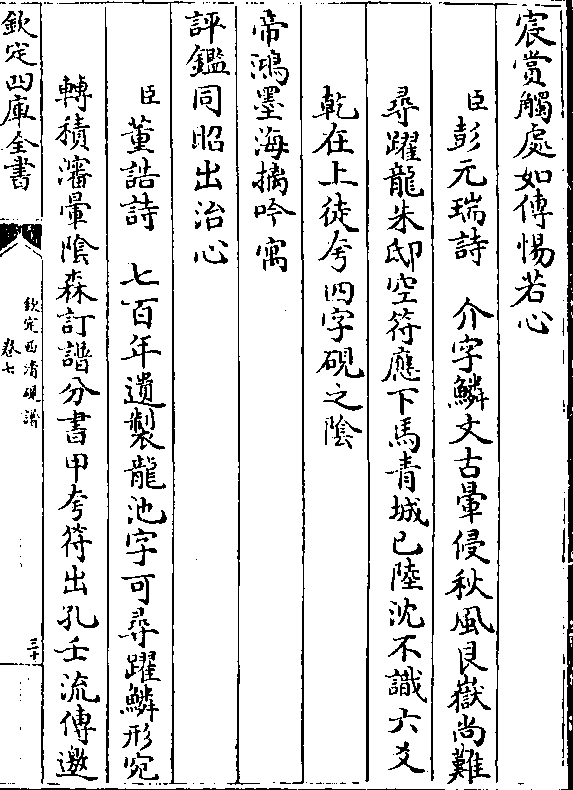 宸賞觸處如傳惕若心
臣彭元瑞詩　介字鱗文古暈侵秋風艮嶽尚難
尋躍龍朱邸空符應下馬青城已陸沈不識六爻
乾在上徒夸四字硯之陰
帝鴻墨海摛吟寓
評鑑同昭出治心
臣董誥詩　七百年遺製龍池字可尋躍鱗形宛
轉積瀋暈陰森訂譜分書甲夸符出孔壬流傳邀
欽定四庫全書
欽定西清硯譜
卷七
三十